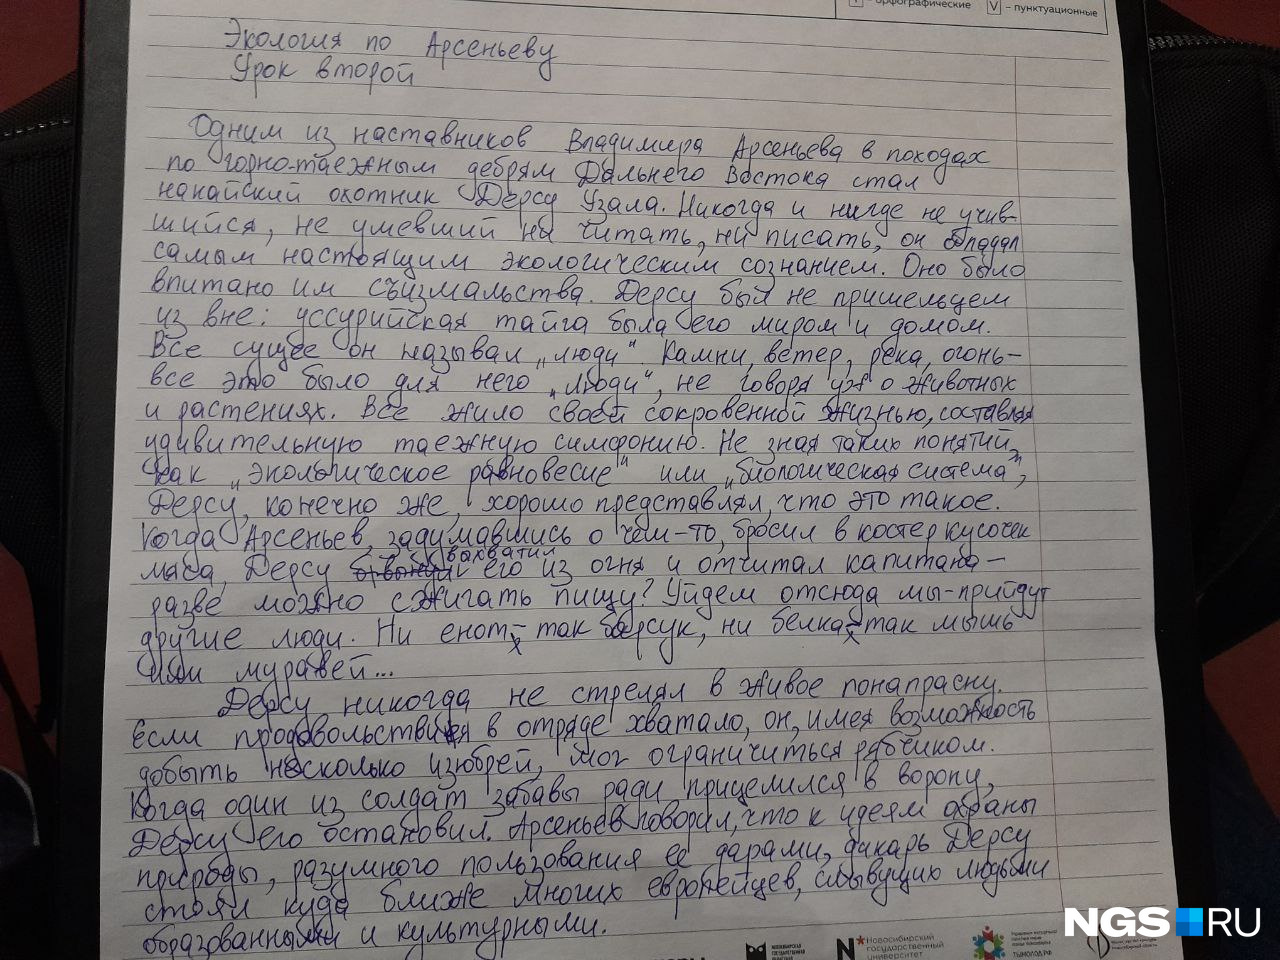 – орфографические V – пунктуационные
Экология по Арсеньеву
Урок второй
Одним из наставников Владимира Арсеньева в походах
по горно-таежным дебрям Дальнего Востока стал
нанайский охотник Дерсу Узала. Никогда и нигде не учив-
шийся, не умевший ни читать, ни писать, он обладал
самым настоящим экологическим сознанием. Оно было
впитано им съизмальства. Дерсу был не пришельцем
из вне: уссурийская тайга была его миром и домом.
Все сущее он называл „люди“ Камни, ветер, река, огонь –
все это было для него „люди“, не говоря уж о животных
и растениях. Все жило своей сокровенной жизнью, составляя
удивительную таежную симфонию. Не зная таких понятий,
как „экологическое равновесие“ или „биологическая система“,
Дерсу, конечно же, хорошо представлял, что это такое.
Когда Арсеньев, задумавшись о чем-то, бросил в костер кусочек
мяса, Дерсу выхватил его из огня и отчитал капитана –
разве можно сжигать пищу? Уйдем отсюда мы - прийдут
другие люди. Ни енот – так барсук, ни белка – так мышь
или муравей...
Дерсу никогда не стрелял в живое понапрасну.
Если продовольствия в отряде хватало, он, имея возможность
добыть несколько изюбрей, мог ограничиться рябчиком.
Когда один из солдат забавы ради прицелился в ворону,
Дерсу его остановил. Арсеньев говорил, что к идеям охраны
природы, разумного пользования ее дарами, дикарь Дерсу
стоял куда ближе многих европейцев, слывущих людьми
образованными и культурными.
NGS RU
Новосибирский
государственный
университет
ТЫМОЛОД.РФ